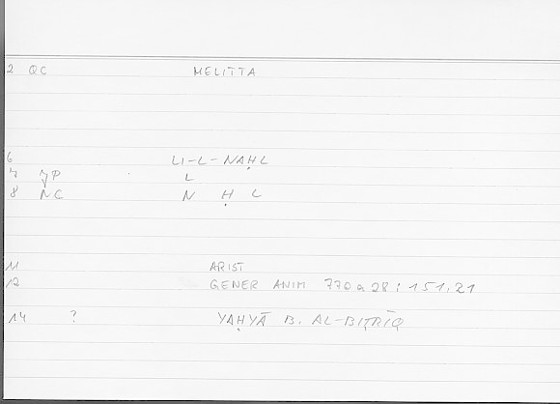 2 QC MELITTA
6 LI-L-NAḤL
7 JP L
8 NC N Ḥ L
11 ARIST
12 GENER ANIM 770a28; 151,21
14 ? YAḤYĀ B. AL-BIṬRĪQ